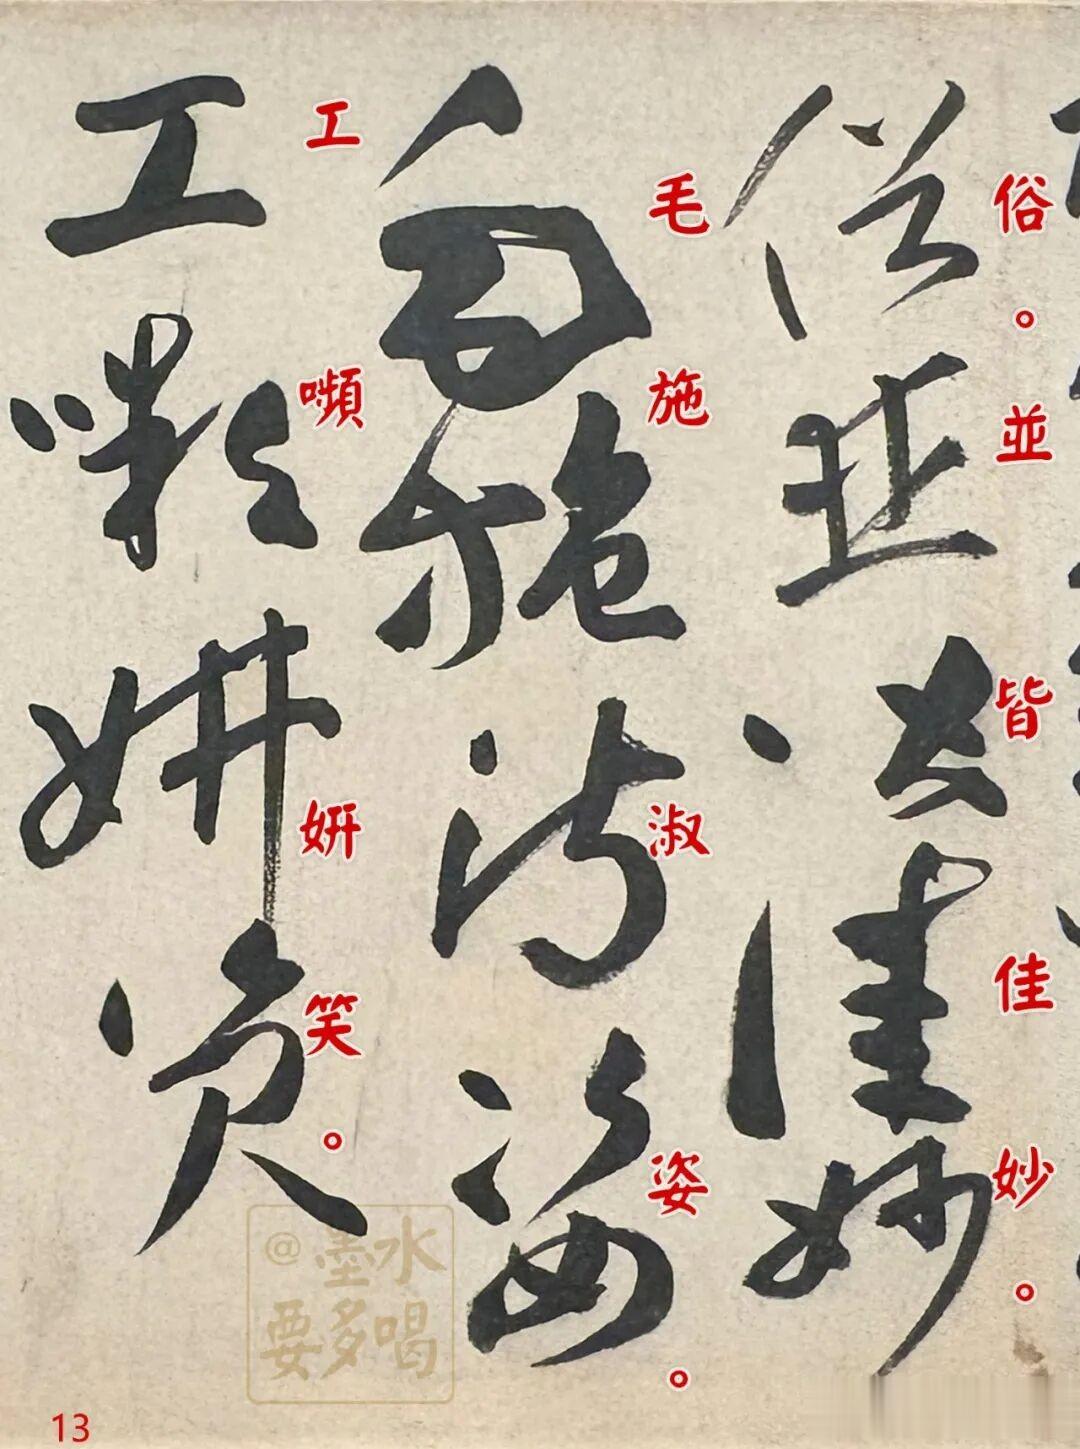 俗。並皆佳妙。
毛施淑姿。
工嚬妍笑。
@墨水
要多喝
13